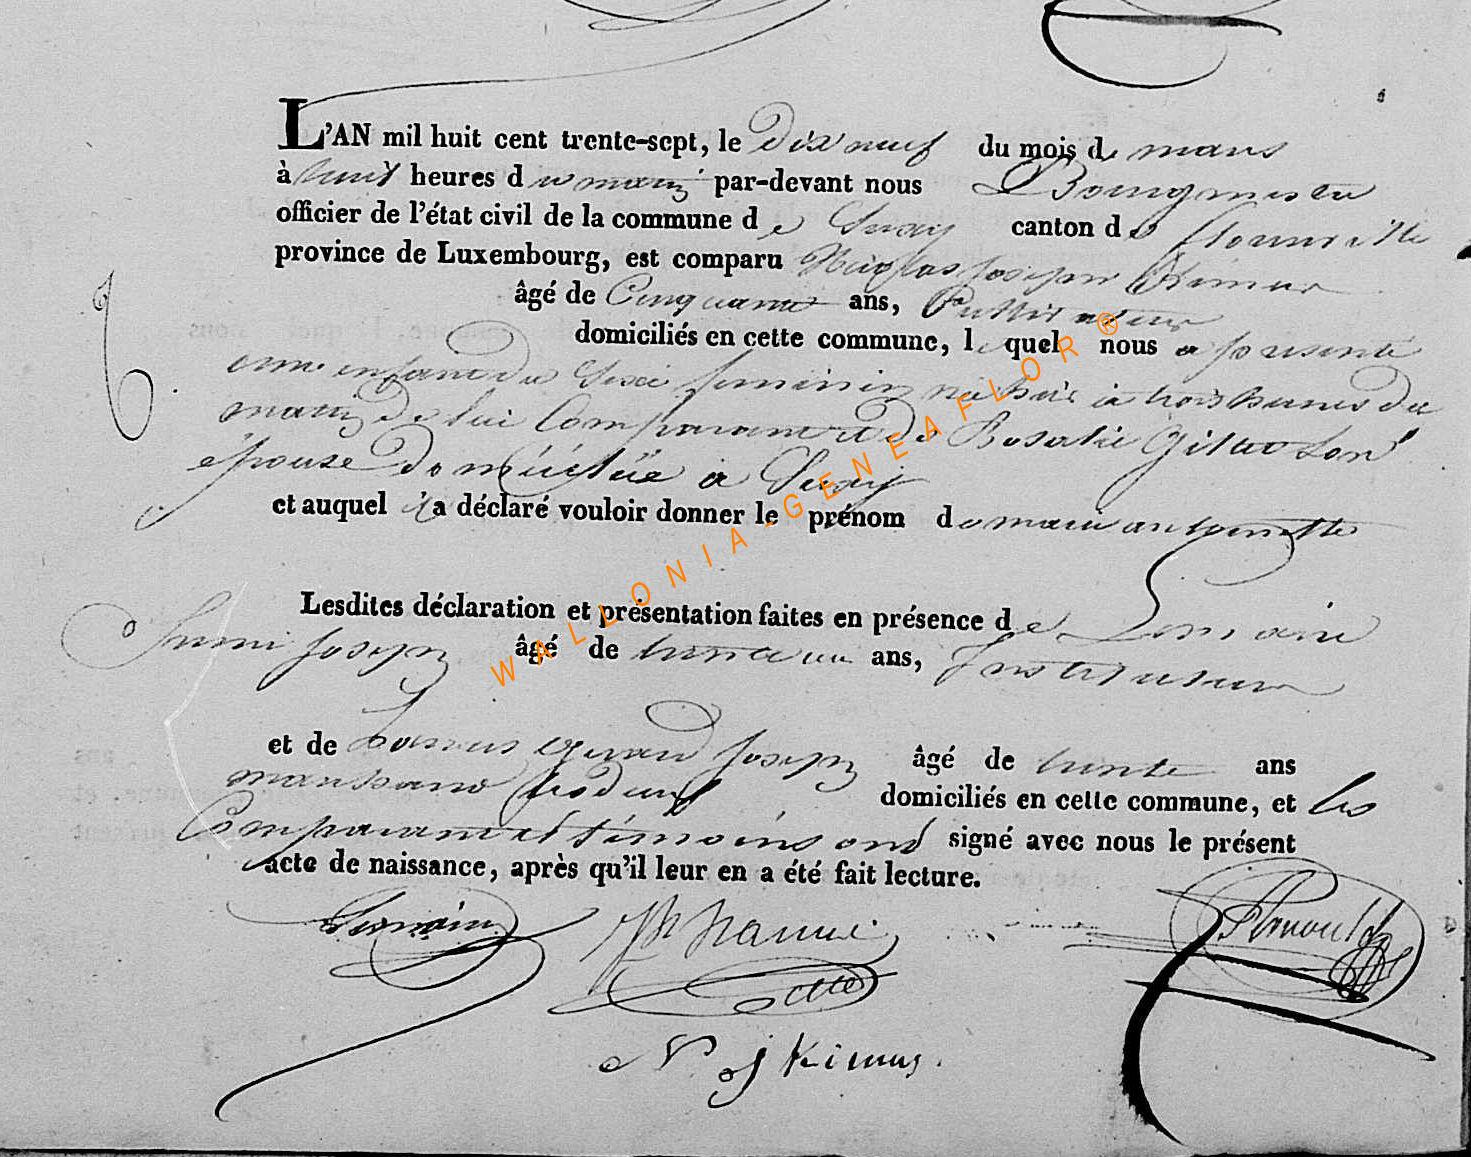 L'AN mil huit cent trente-sept, le dix neuf du mois de mars
à huit heures du matin par-devant nous Bourgmestre
officier de l'état civil de la commune de Suxy canton de florenville
province de Luxembourg, est comparu Nicolas Joseph Kimus
âgé de Cinquante ans, Cultivateur
domiciliés en cette commune, lequel nous a présenté
une enfant du Sexe feminin né hier à trois heures du
matin de lui Comparant et de Rosalie Gillardon
épouse domiciliée à Suxy
et auquel il a déclaré vouloir donner le prénom de marie antoinette
Lesdites déclaration et présentation faites en présence de Lemaire
henri Joseph âgé de trente un ans, Instituteur
et de gerard Joseph âgé de trente ans
domiciliés en cette commune, et les
Comparant et témoins ont signé avec nous le présent
acte de naissance, après qu'il leur en a été fait lecture.
Lemaire
N j Kimus.
WALLONIA-GENEAFLOR®